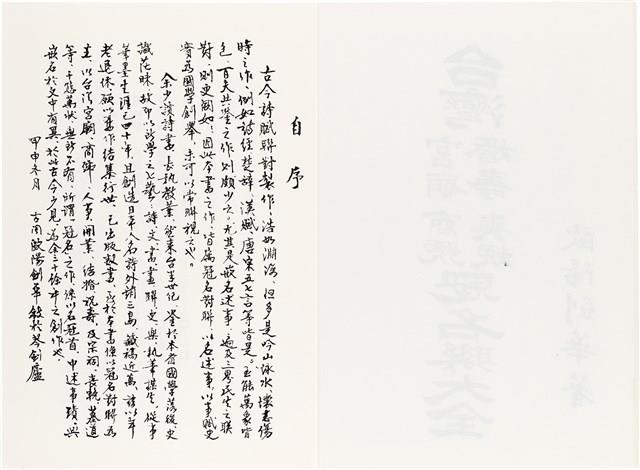 自序
古今詩賦聯對製作,浩如淵海,但多是吟山詠水,懷春傷
時之作,例如詩經楚辭,漢賦唐宋五七言等皆是。至能萬象皆
包,百之作則頗少之。尤其是嵌名述事,遍及三界民生之聯
對,則更闕如。因此本書之作,皆為冠名對聯,以名述事,以事賦史
實為國學創舉,未可以常聯視之也。
余少讀詩書,長執教業,然來台半世紀,鑒於本省國學落後,史
識茫昧,故即以所學之七藝,詩文書畫聯史樂,執筆撰作,從事
筆墨生涯已四十年,且創造百年人名詩外詞三,藏稿近萬,該以年
老退休,願以舊作結集行世。已出版數書,至於本書僅以冠名對聯為
主,以台灣宮廟、商號、人事、開業、結婚、祝壽及宗祠、喪輓、墓道
等,千萬狀,無所不有。所謂冠名之作,係以名冠首,中述事蹟,與
嵌名於文中有異,於此古今少見,為余三十餘年之創作也。
甲申冬月 古閩歐陽劍華敘於岑劍廬
台灣宮廟商號婚壽喪輓冠名聯大全
歐陽劍華著